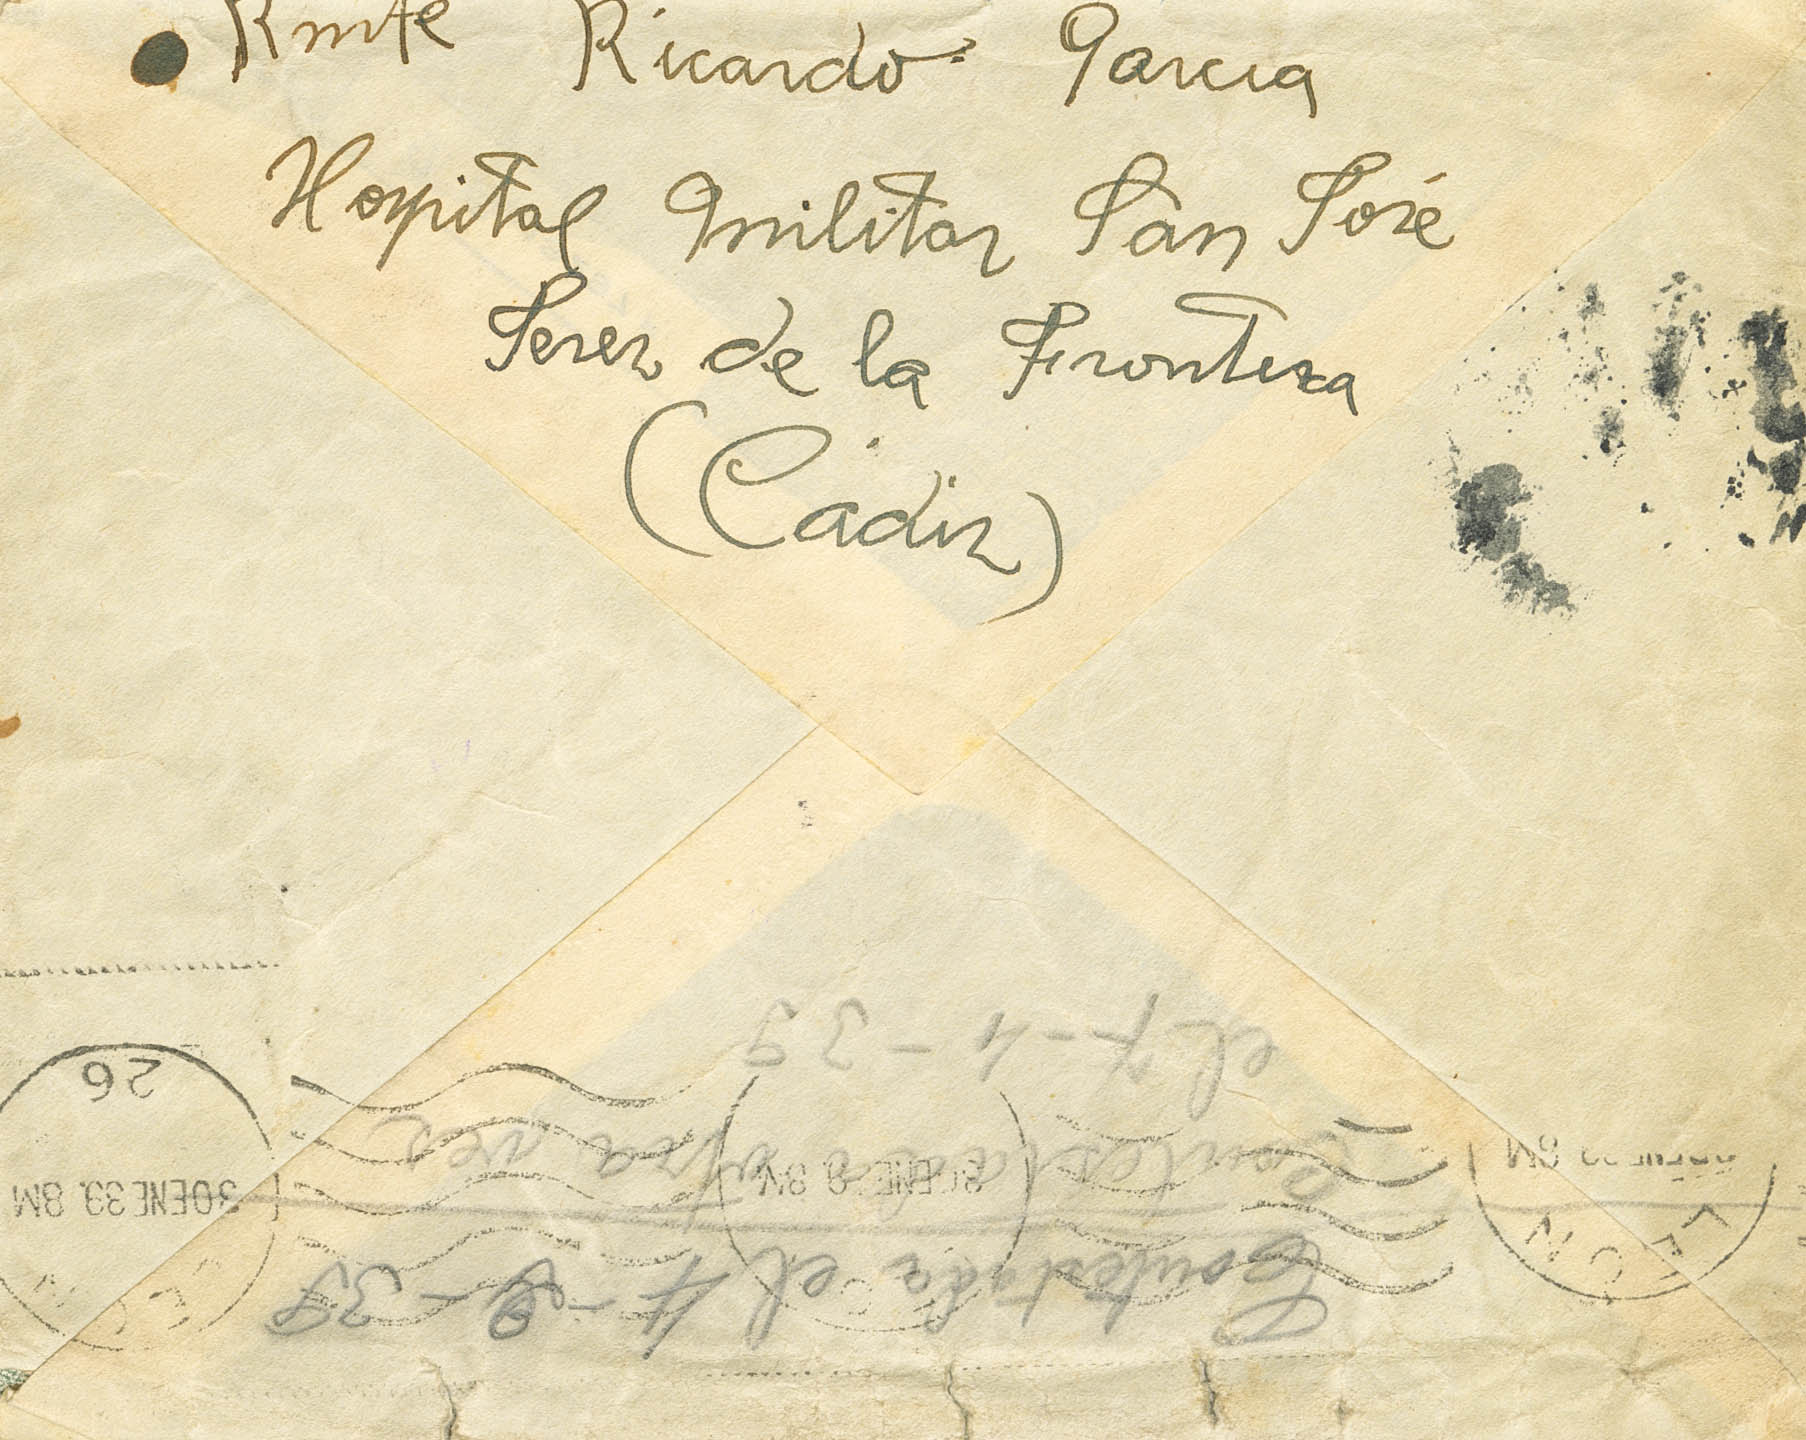 Rmte Ricardo Garcia
Hospital Militar San José
Jerez de la Frontera
(Cádiz)
Contestada el 4-2-39
Contestado otra vez
el 7-4-39
26
30ENE39.8M
LEON
LEON